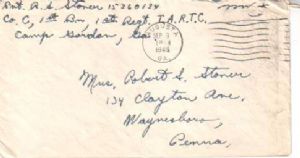 Pvt. R. S. Stoner 15260134
Co. C, 1st Bn, 1st Regt. I.A.R.T.C.
Camp Gordon, Ga.
AUGUSTA
SEP 9
1945
GA.
Mrs. Robert S. Stoner
134 Clayton Ave.
Waynesboro,
Penna,